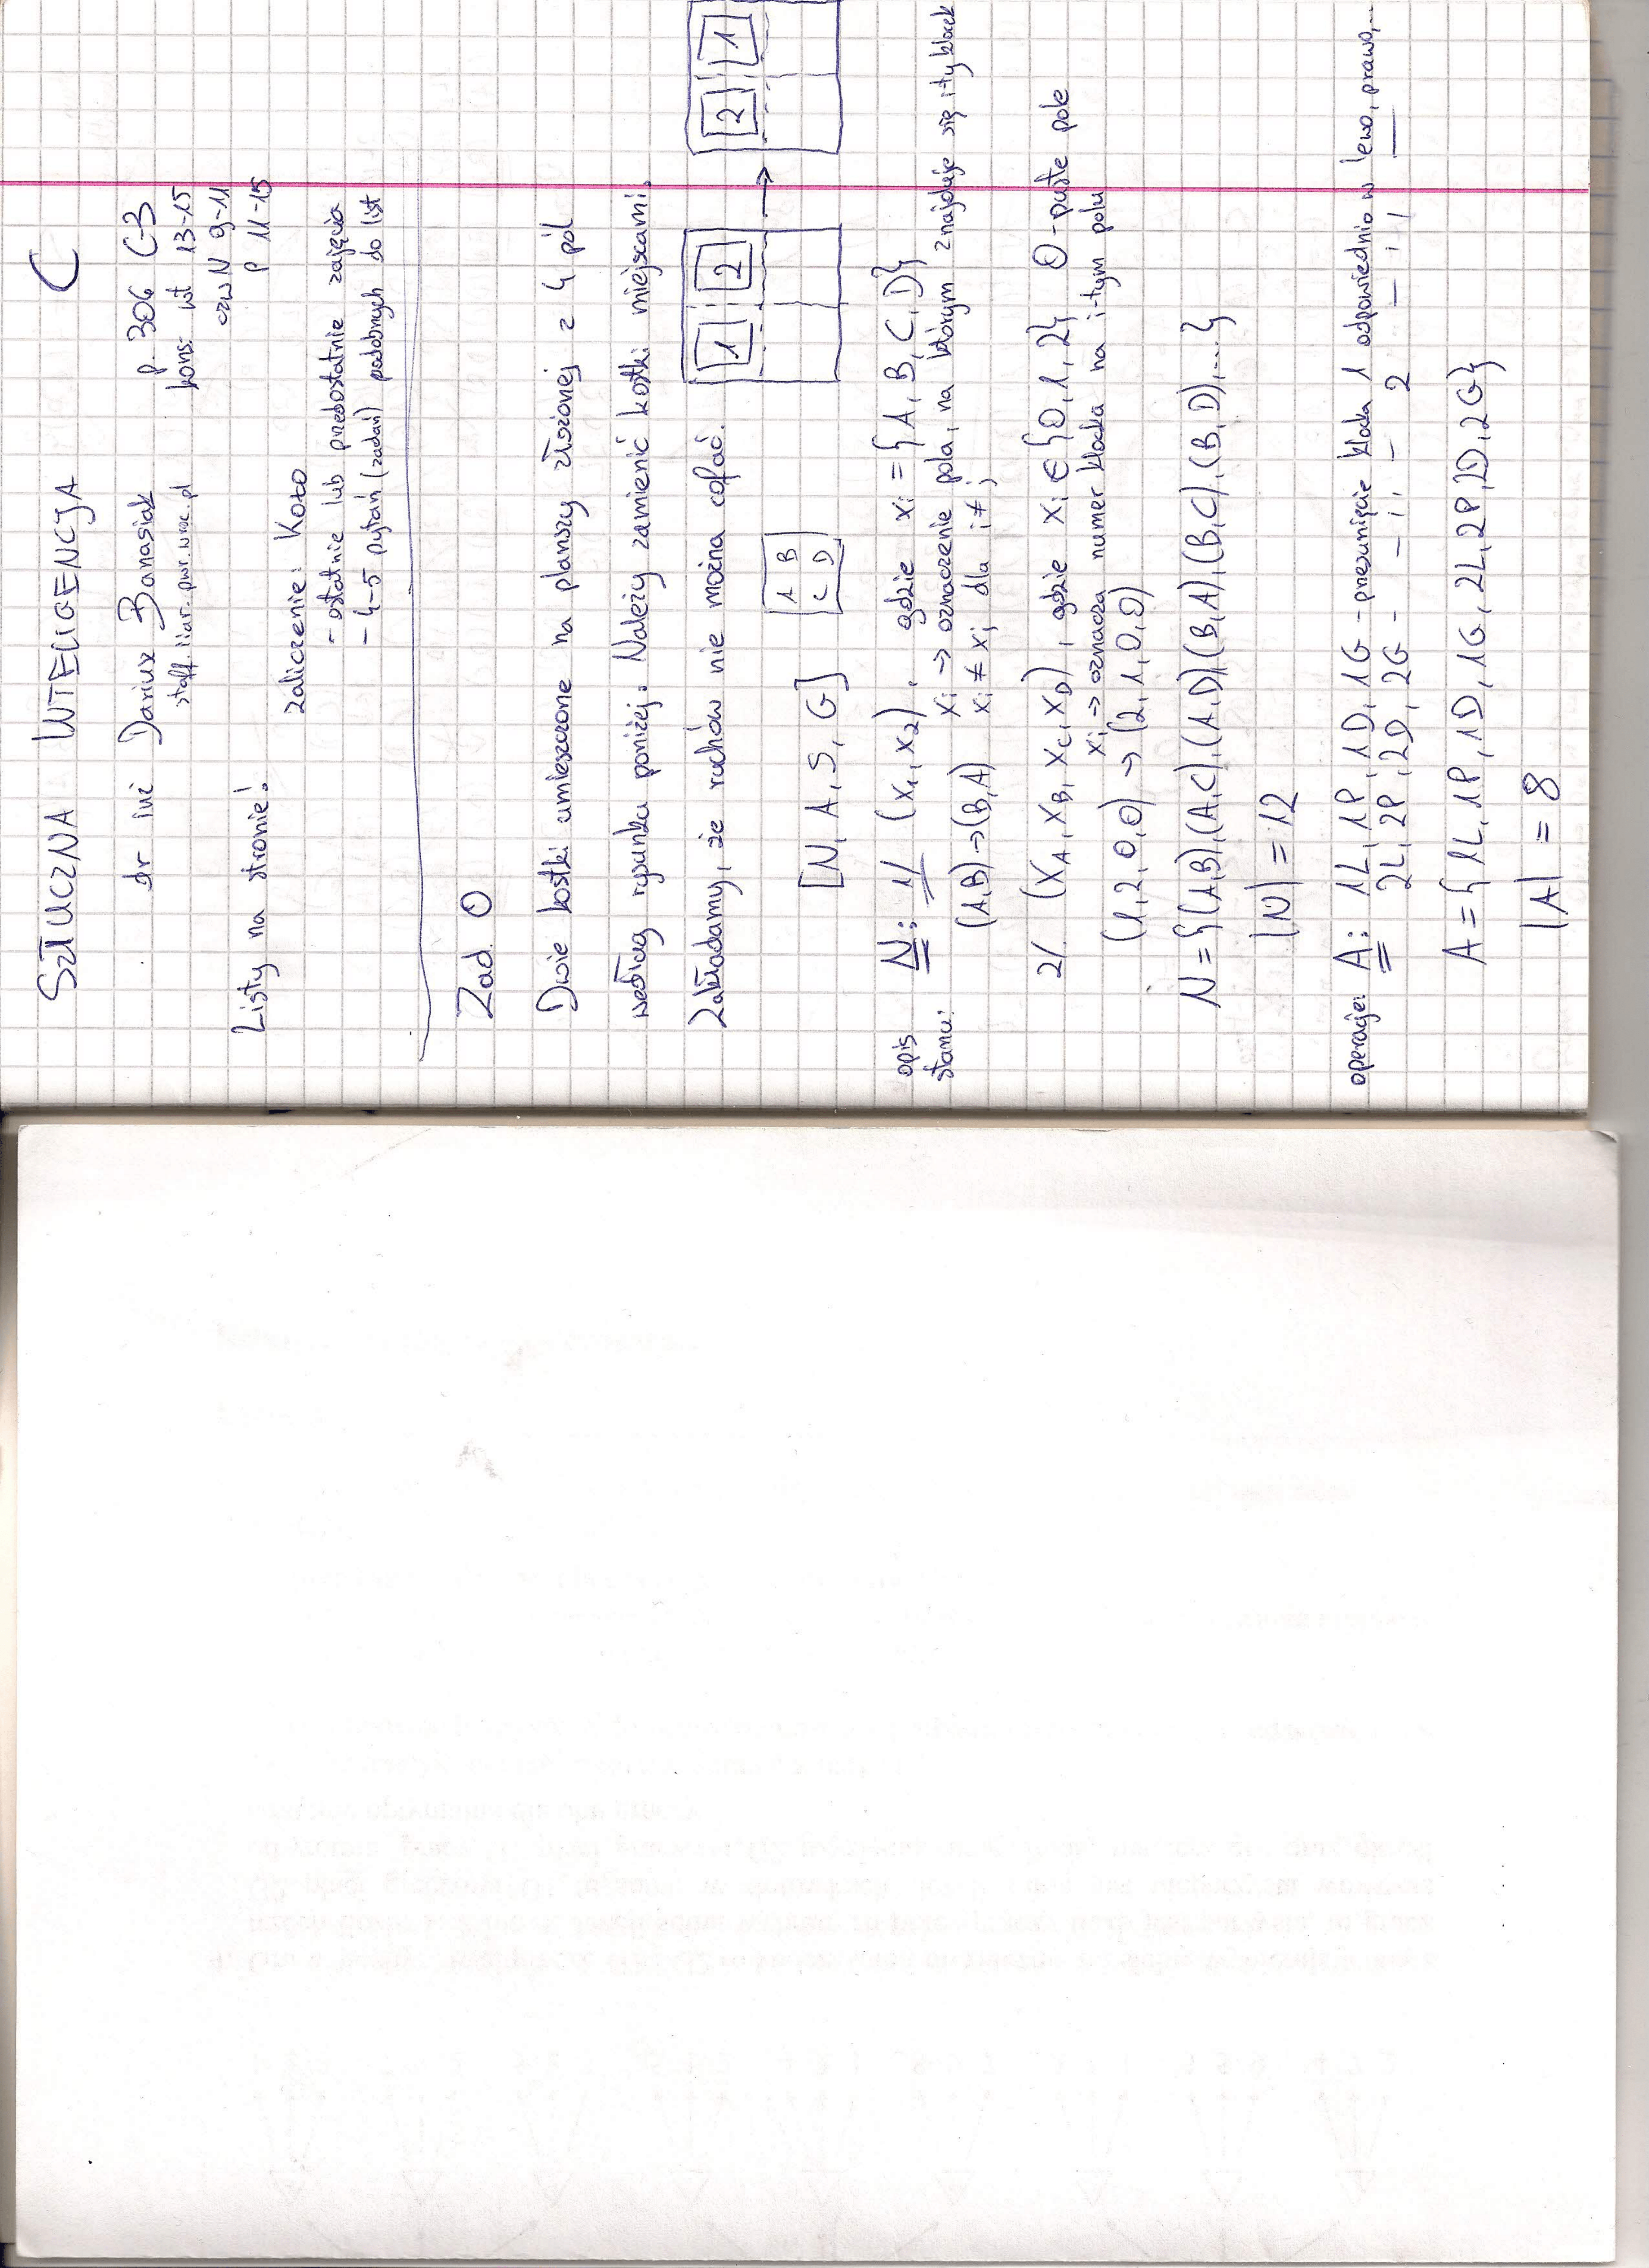 SZTUCZNA INTELIGENCJA C
dr inż Dariusz Banasiak p. 306 C-3
staff.iiar.pwr.wroc.pl kons: wt 13-15
czw N 9-11
P 11-15
Listy na stronie!
zaliczenie: Koło
- ostatnie lub przedostatnie zajęcia
- 4-5 pytań (zadań) podobnych do list
Zad. 0
Dwie kostki umieszczone na planszy złożonej z 4 pól
według rysunku poniżej. Należy zamienić kostki miejscami.
Zakładamy, że ruchów nie można cofać.
1 2 → 2 1
[N, A, S, G]
A B
C D
opis stanu: N: 1/ (x1, x2), gdzie xi = {A, B, C, D}
xi → oznaczenie pola, na którym znajduje się i-ty klocek
(A,B) → (B,A) xi ≠ xj dla i ≠ j
2/ (xA, xB, xC, xD), gdzie xi ∈ {0, 1, 2} 0 - puste pole
xi → oznacza numer klocka na i-tym polu
(1, 2, 0, 0) → (2, 1, 0, 0)
N = {(A,B),(A,C),(A,D),(B,A),(B,C),(B,D),...}
|N| = 12
operacje: A: 1L, 1P, 1D, 1G - przesunięcie klocka 1 odpowiednio w lewo, prawo,...
2L, 2P, 2D, 2G - — ii — 2 — ii —
A = {1L, 1P, 1D, 1G, 2L, 2P, 2D, 2G}
|A| = 8